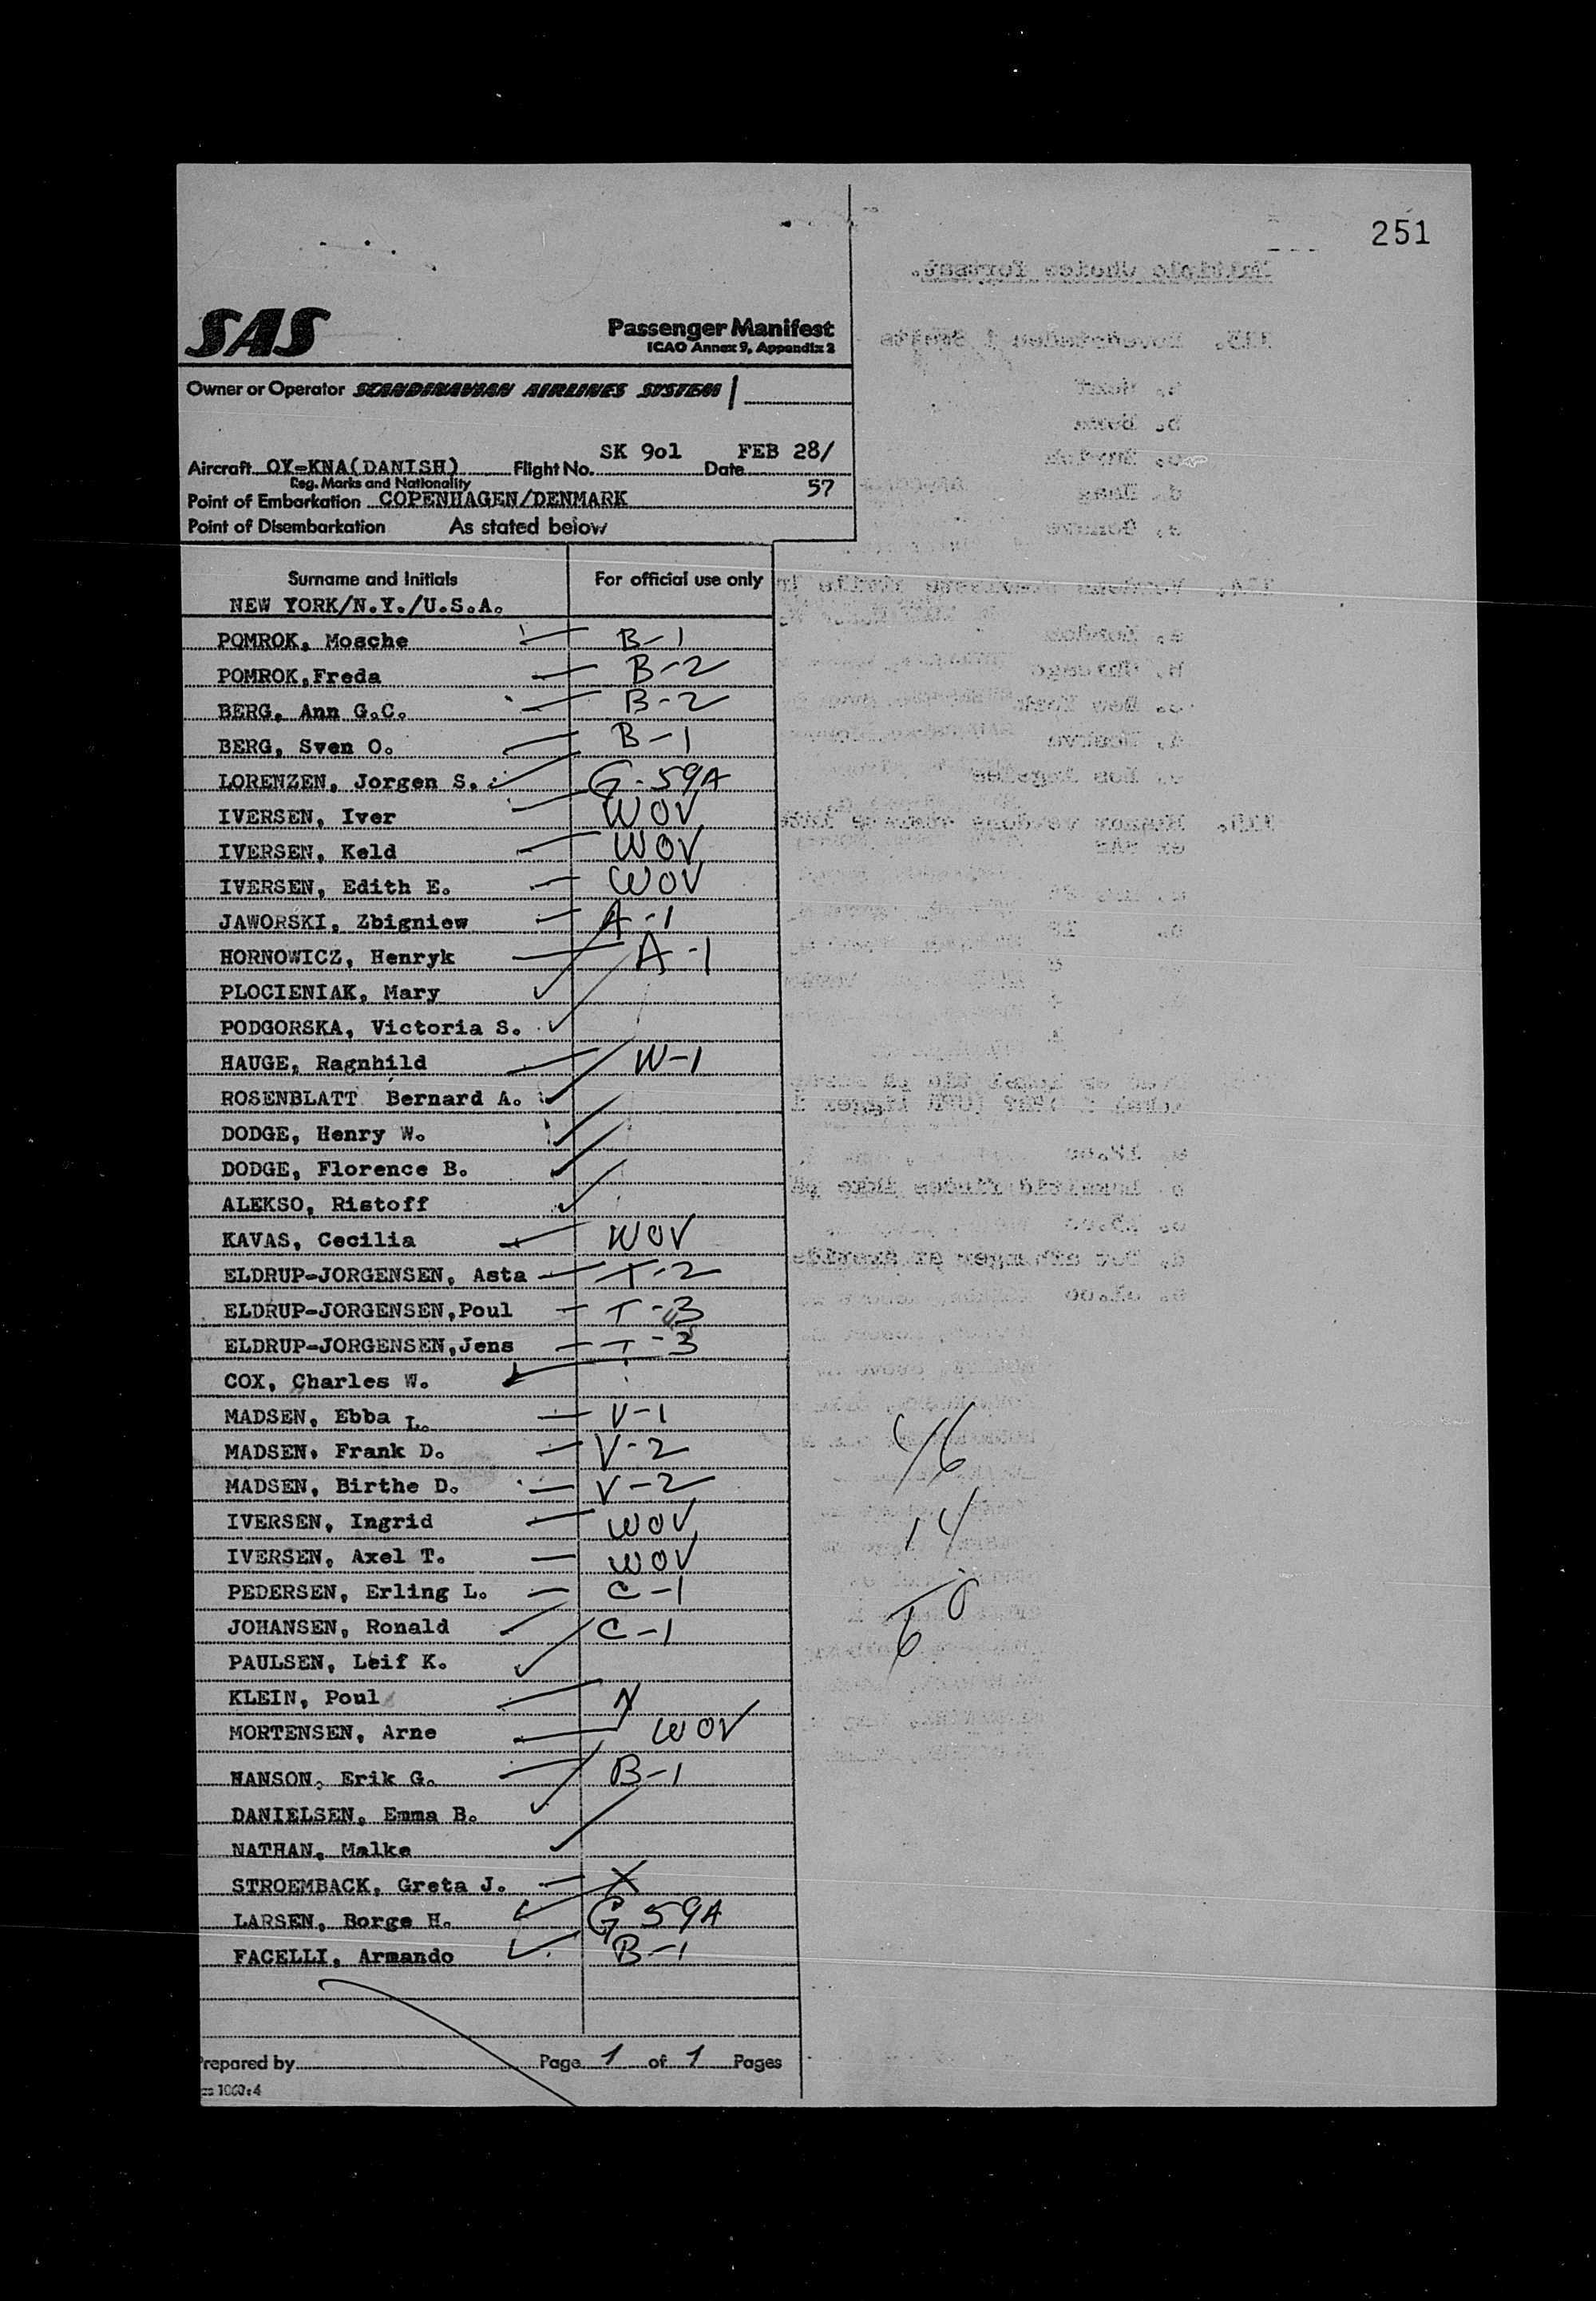 251
SAS
Passenger Manifest
ICAO Annex 9, Appendix 2
Owner or Operator SCANDINAVIAN AIRLINES SYSTEM
SK 9o1 FEB 28/
Aircraft OY-KNA(DANISH) Flight No. Date
Reg. Marks and Nationality 57
Point of Embarkation COPENHAGEN/DENMARK
Point of Disembarkation As stated below
Surname and Initials For official use only
NEW YORK/N.Y./U.S.A.
POMROK, Mosche B-1
POMROK,Freda B-2
BERG, Ann G.C. B-2
BERG, Sven O. B-1
LORENZEN, Jorgen S. G-59A
IVERSEN, Iver WOV
IVERSEN, Keld WOV
IVERSEN, Edith E. WOV
JAWORSKI, Zbigniew A-1
HORNOWICZ, Henryk A-1
PLOCIENIAK, Mary
PODGORSKA, Victoria S.
HAUGE, Ragnhild W-1
ROSENBLATT Bernard A.
DODGE, Henry W.
DODGE, Florence B.
ALEKSO, Ristoff
KAVAS, Cecilia WOV
ELDRUP-JORGENSEN, Asta T-2
ELDRUP-JORGENSEN,Poul T-3
ELDRUP-JORGENSEN,Jens T-3
COX, Charles W.
MADSEN, Ebba L. V-1
MADSEN, Frank D. V-2
MADSEN, Birthe D. V-2
IVERSEN, Ingrid WOV
IVERSEN, Axel T. WOV
PEDERSEN, Erling L. C-1
JOHANSEN, Ronald C-1
PAULSEN, Leif K.
KLEIN, Poul
MORTENSEN, Arne WOV
HANSON, Erik G. B-1
DANIELSEN, Emma B.
NATHAN, Malke
STROEMBACK, Greta J. X
LARSEN, Borge H. G 59A
FACELLI, Armando B-1
14
Prepared by Page 1 of 1 Pages